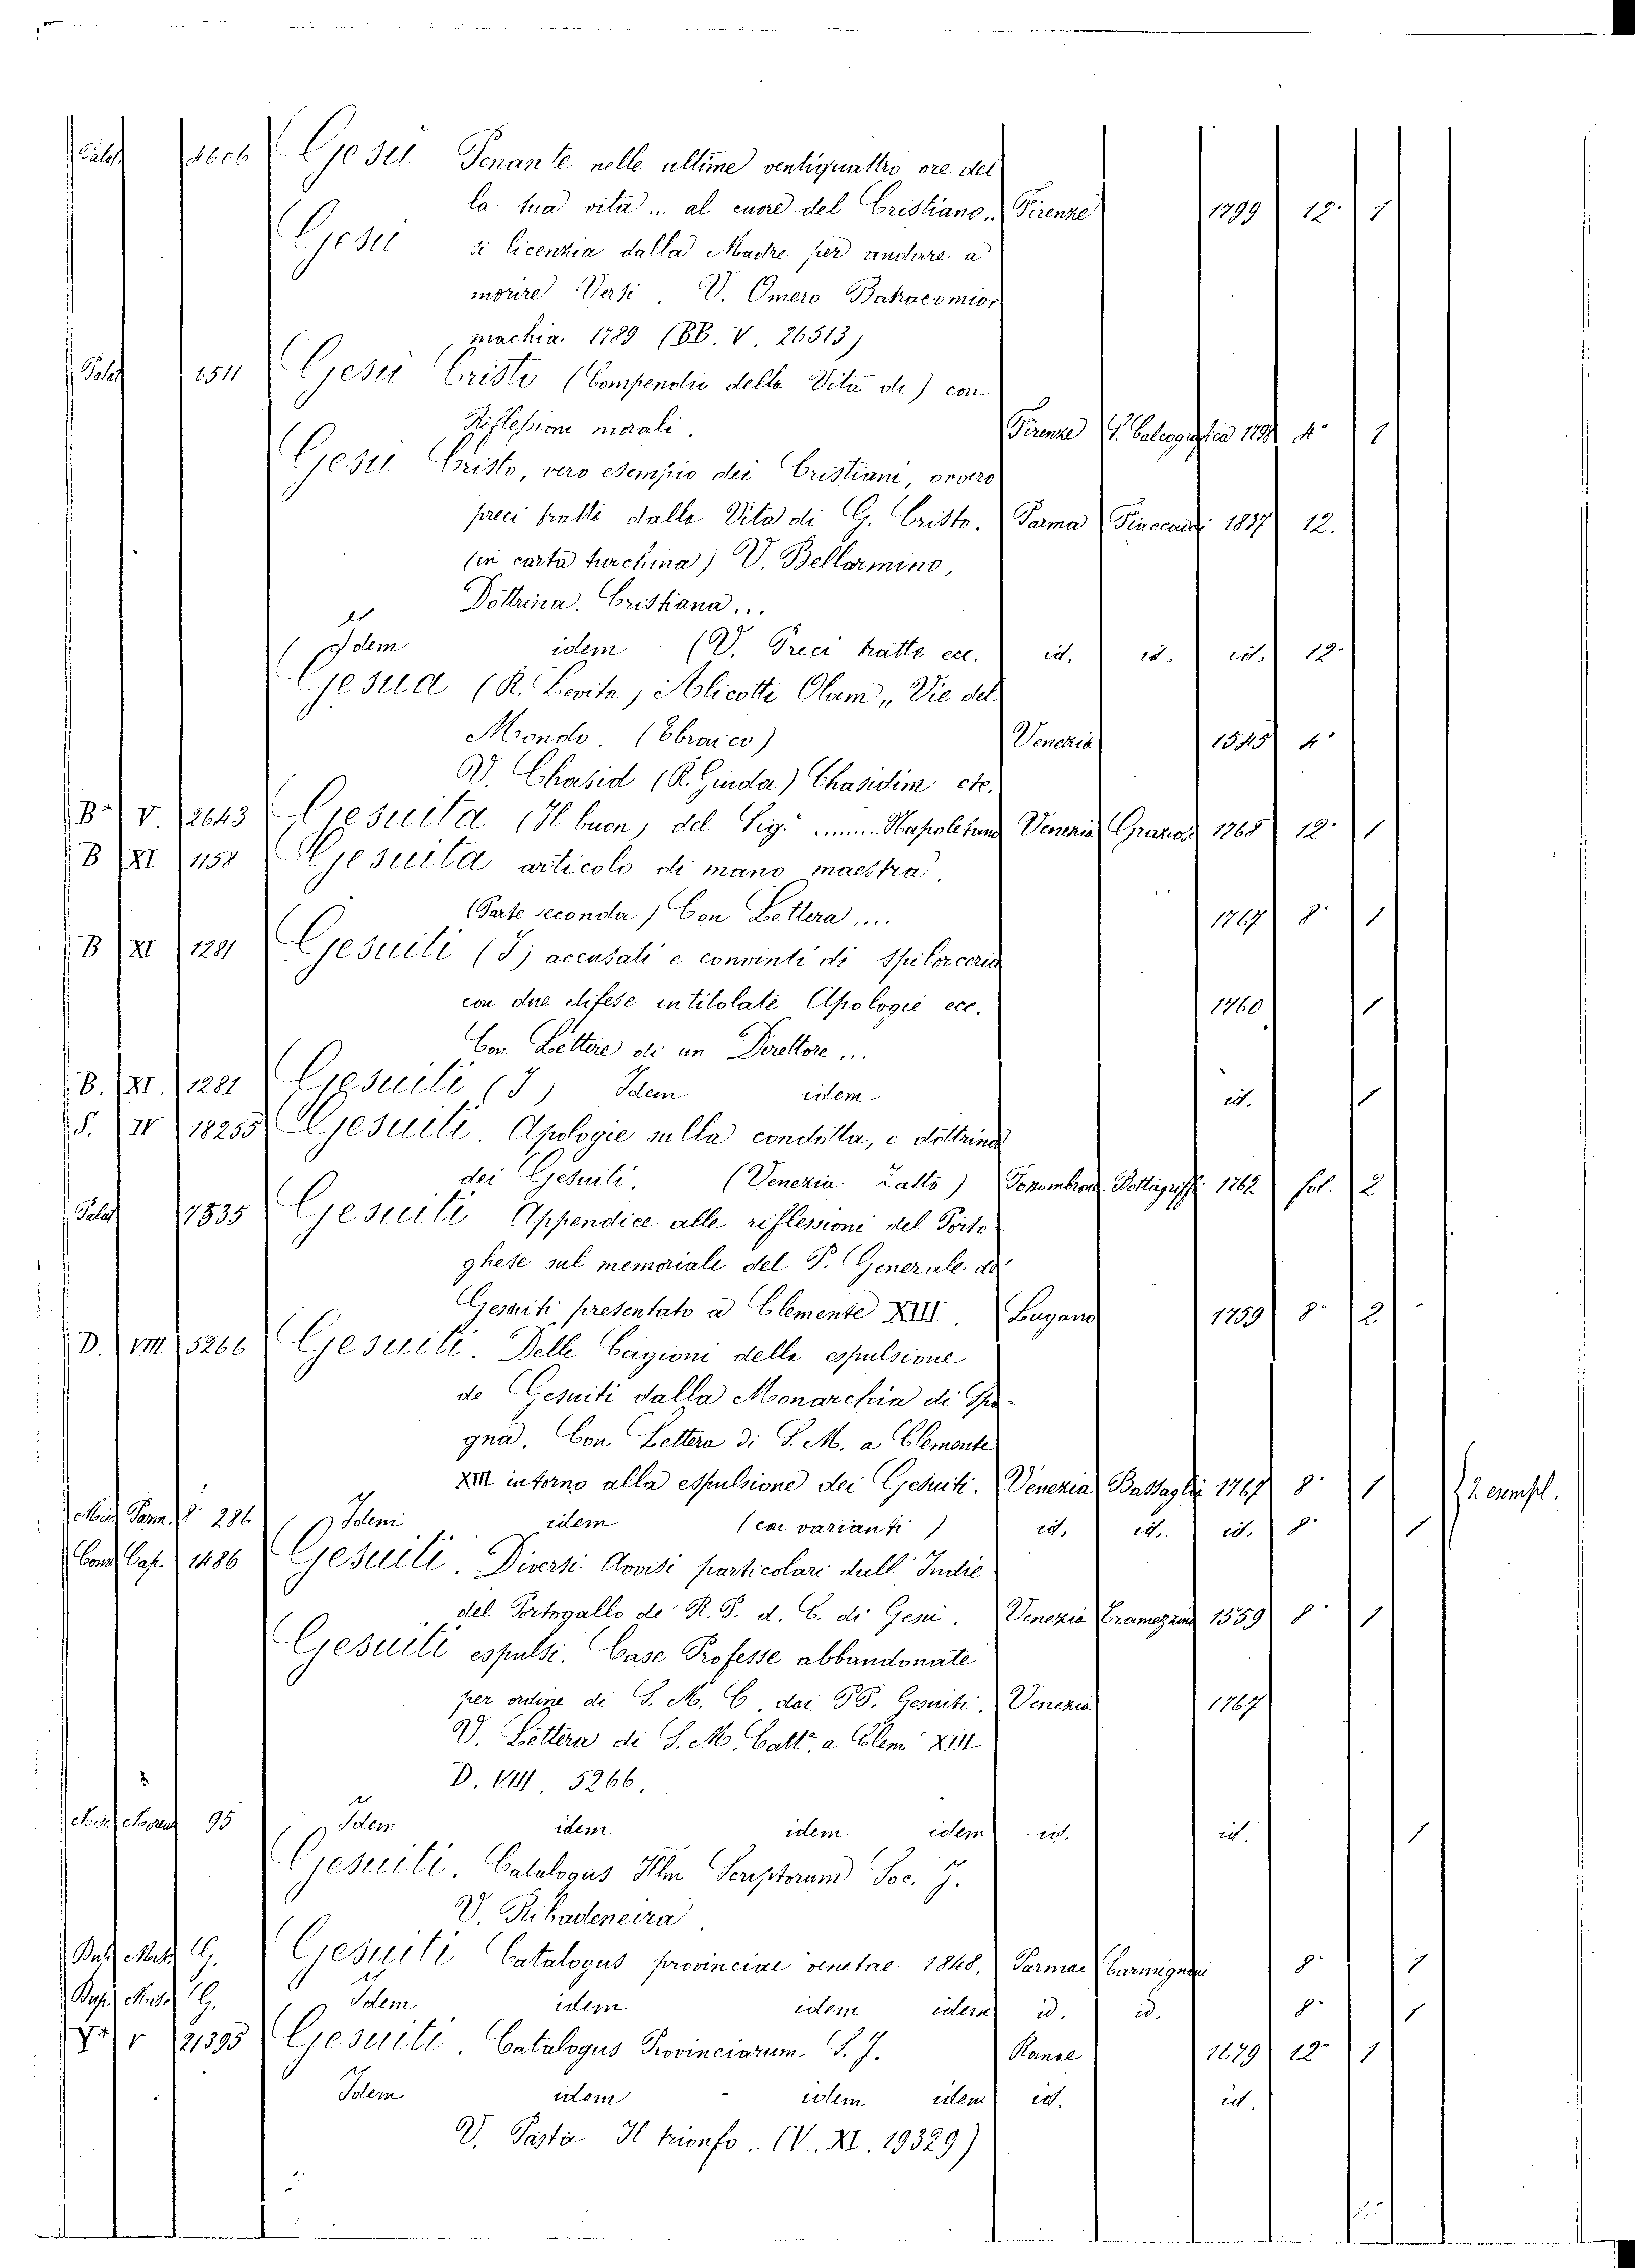 Palat 1606 Gesù Penante nelle ultime ventiquattro ore del
la sua vita ... al cuore del Cristiano. Firenze 1799 12. 1
Gesù si licenzia dalla Madre per andare a
morire Versi. V. Omero Batracomio
machia 1789 (BB. V. 26513)
Palat 1511 Gesù Cristo (Compendio della Vita di) con
Riflessioni morali. Firenze 4° 1
Gesù Cristo, vero esempio dei Cristiani, ovvero
preci tratte dalla Vita di G. Cristo. Parma Fiaccadori 1837 12.
(in carta turchina) V. Bellarmino,
Dottrina Cristiana...
Idem idem (V. Preci tratte ecc. id. id. id. 12.
Gesua (R. Levita) Alicotti Olam „ Vie del
Mondo. (Ebraico) Venezia 1545 4°
V. Chasid (R. Ginda) Chasidim etc.
B V. 2643 Gesuita (Il buon) del Sig. Napoletano Venezia Graziosi 1768 12. 1
B XI 1158 Gesuita articolo di mano maestra.
(Parte seconda) Con Lettera .... 1767 8. 1
B XI 1281 Gesuiti (I) accusati e convinti di Spilorceria
con due difese intitolate Apologie ecc. 1760 1
Con Lettere di un Direttore ...
B. XI. 1281 Gesuiti (I) Idem idem id. 1
S. IV 18255 Gesuiti. Apologie sulla condotta, e dottrina
dei Gesuiti. (Venezia Zatta) 1762 fol. 2
Palat 7835 Gesuiti Appendice alle riflessioni del Porto
ghese sul memoriale del P. Generale de
Gesuiti presentato a Clemente XIII. Lugano 1759 8. 2
D. VIII 5266 Gesuiti. Delle Cagioni della espulsione
de Gesuiti dalla Monarchia di Spa-
gna. Con Lettera di S. M. a Clemente
XIII intorno alla espulsione dei Gesuiti. Venezia Bassaglia 1767 8. 1 2 esempl.
Parm. 8° 286 Idem idem (con varianti) id. id. id. 8. 1
1486 Gesuiti. Diversi Avvisi particolari dall' Indie
del Portogallo de R. P. d. C. di Gesù. Venezia Tramezzino 1559 8. 1
Gesuiti espulsi. Case Professe abbandonate
per ordine di S. M. C. dai PP. Gesuiti. Venezia 1767
V. Lettera di S. M. Catt.a a Clem.e XIII
D. VIII 5266.
95 Idem idem idem idem id. id. 1
Gesuiti. Catalogus Illm Scriptorum Soc. J.
V. Ribadeneira
G. Gesuiti Catalogus provinciae venetae 1848. Parmae Carmignani 8. 1
G. Idem idem idem idem id. id. 8. 1
V 21395 Gesuiti. Catalogus Provinciarum S. J. Romae 1679 12. 1
Idem idem idem idem id. id.
V. Pasta Il trionfo .. (V. XI. 19329)